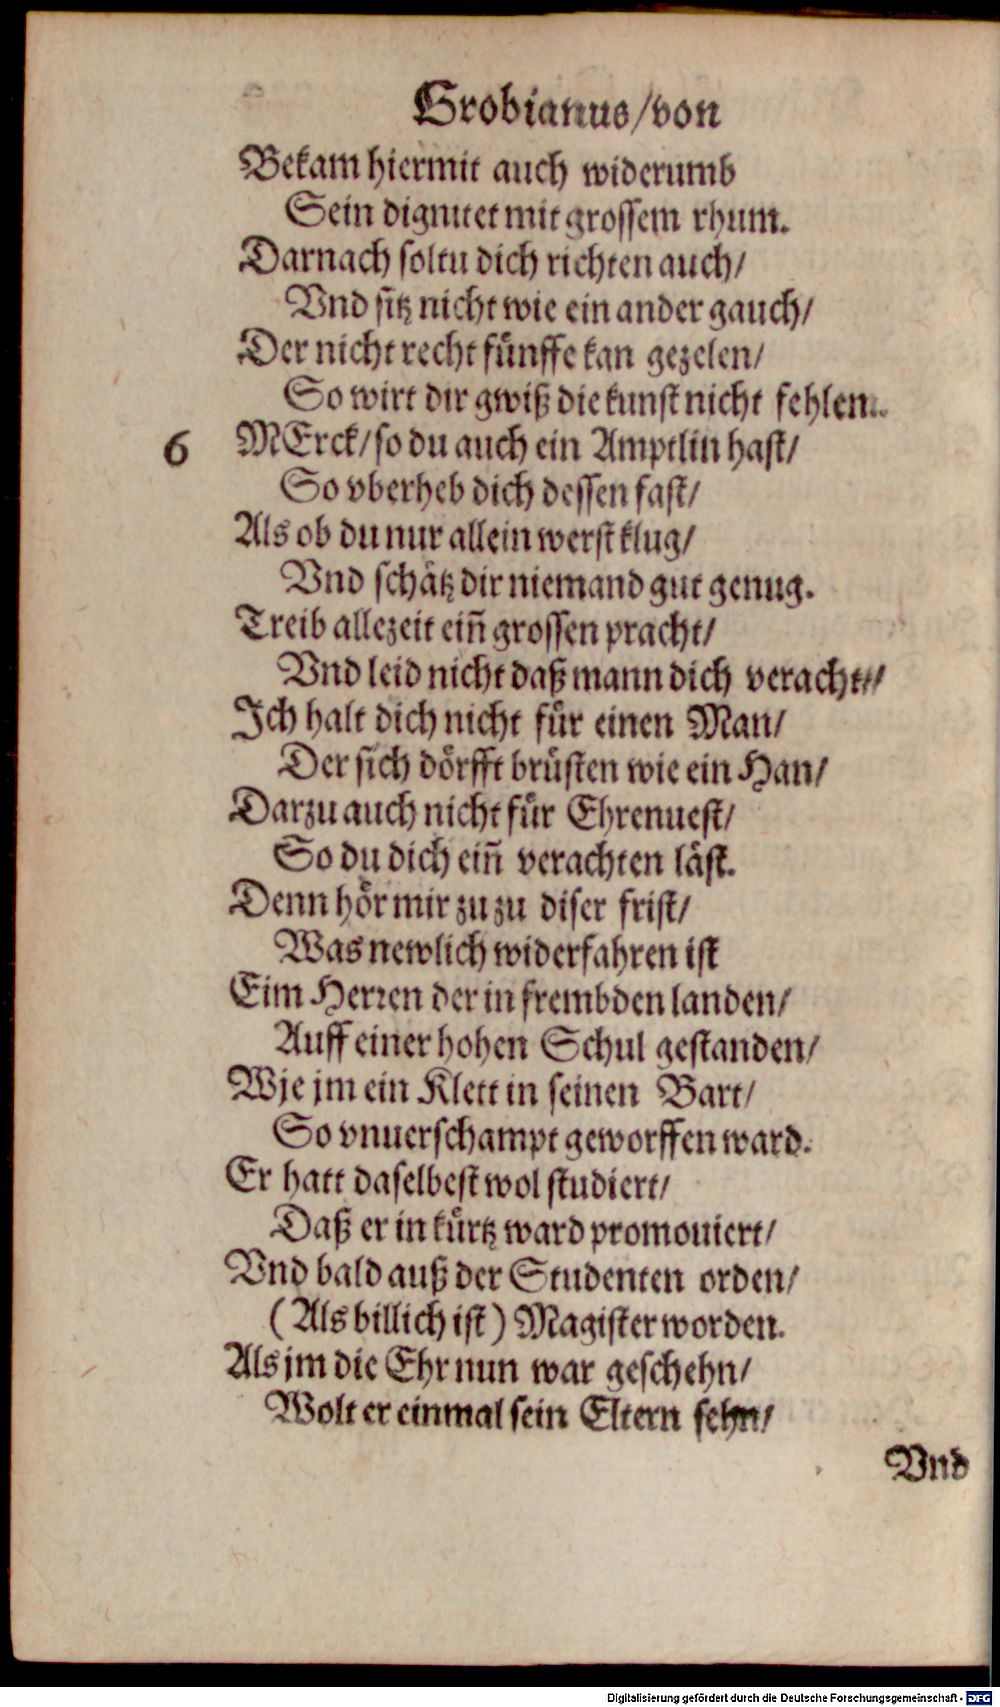 Grobianus/von
Bekam hiermit auch widerumb
Sein dignitet mit grossem rhum.
Darnach soltu dich richten auch/
Vnd sitz nicht wie ein ander gauch/
Der nicht recht fünffe kan gezelen/
So wirt dir gwiß die kunst nicht fehlen.
6 MErck/so du auch ein Amptlin hast/
So vberheb dich dessen fast/
Als ob du nur allein werst klug/
Vnd schätz dir niemand gut genug.
Treib allezeit eiñ grossen pracht/
Vnd leid nicht daß mann dich veracht/
Ich halt dich nicht für einen Man/
Der sich dörfft brüsten wie ein Han/
Darzu auch nicht für Ehrenuest/
So du dich eiñ verachten läst.
Denn hör mir zu zu diser frist/
Was newlich widerfahren ist
Eim Herren der in frembden landen/
Auff einer hohen Schul gestanden/
Wje jm ein Klett in seinen Bart/
So vnuerschampt geworffen ward.
Er hatt daselbest wol studiert/
Daß er in kürtz ward promouiert/
Vnd bald auß der Studenten orden/
(Als billich ist) Magister worden.
Als jm die Ehr nun war geschehn/
Wolt er einmal sein Eltern sehn/
Vnd
Digitalisierung gefördert durch die Deutsche Forschungsgemeinschaft - DFG